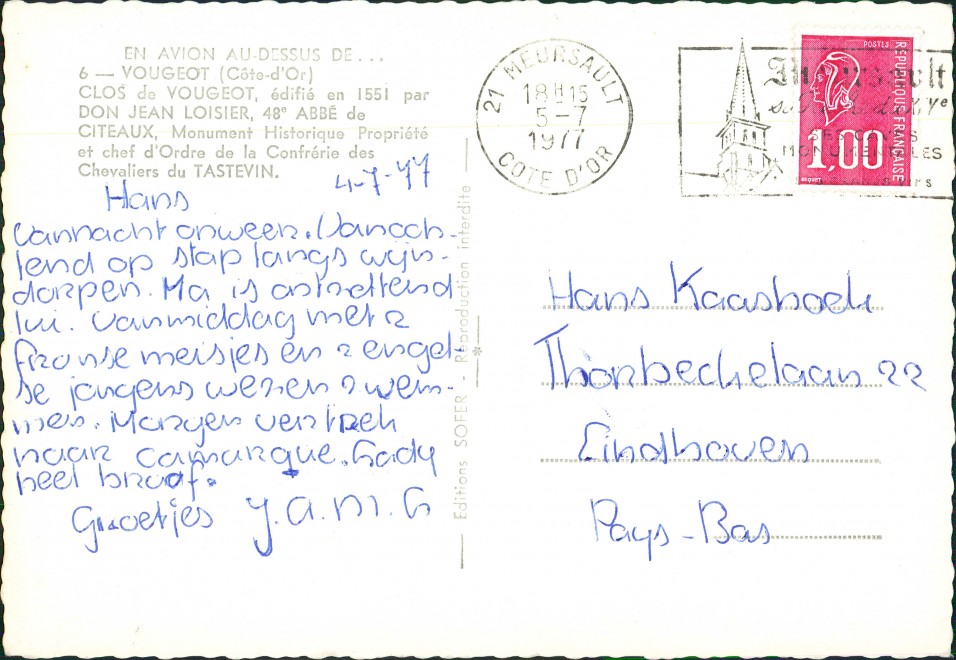 EN AVION AU-DESSUS DE...
6 — VOUGEOT (Côte-d'Or)
CLOS de VOUGEOT, édifié en 1551 par
DON JEAN LOISIER, 48e ABBÉ de
CITEAUX, Monument Historique Propriété
et chef d'Ordre de la Confrérie des
Chevaliers du TASTEVIN.
4-7-77
Hans
Vannacht onweer. Vanoch-
tend op stap langs wijn-
dorpen. Ma is ontzettend
lui. Vanmiddag met 2
franse meisjes en 2 engel-
se jongens wezen zwem-
men. Morgen vertrek
naar camarque. Gady
heel braaf.
Groetjes Y.a.M.G
Editions SOFER - Reproduction interdite
21 MEURSAULT
18H15
5-7
1977
COTE D'OR
MONUMENTALES
POSTES
REPUBLIQUE FRANÇAISE
1,00
Hans Kaashoek
Thorbechelaan 22
Eindhoven
Pays-Bas